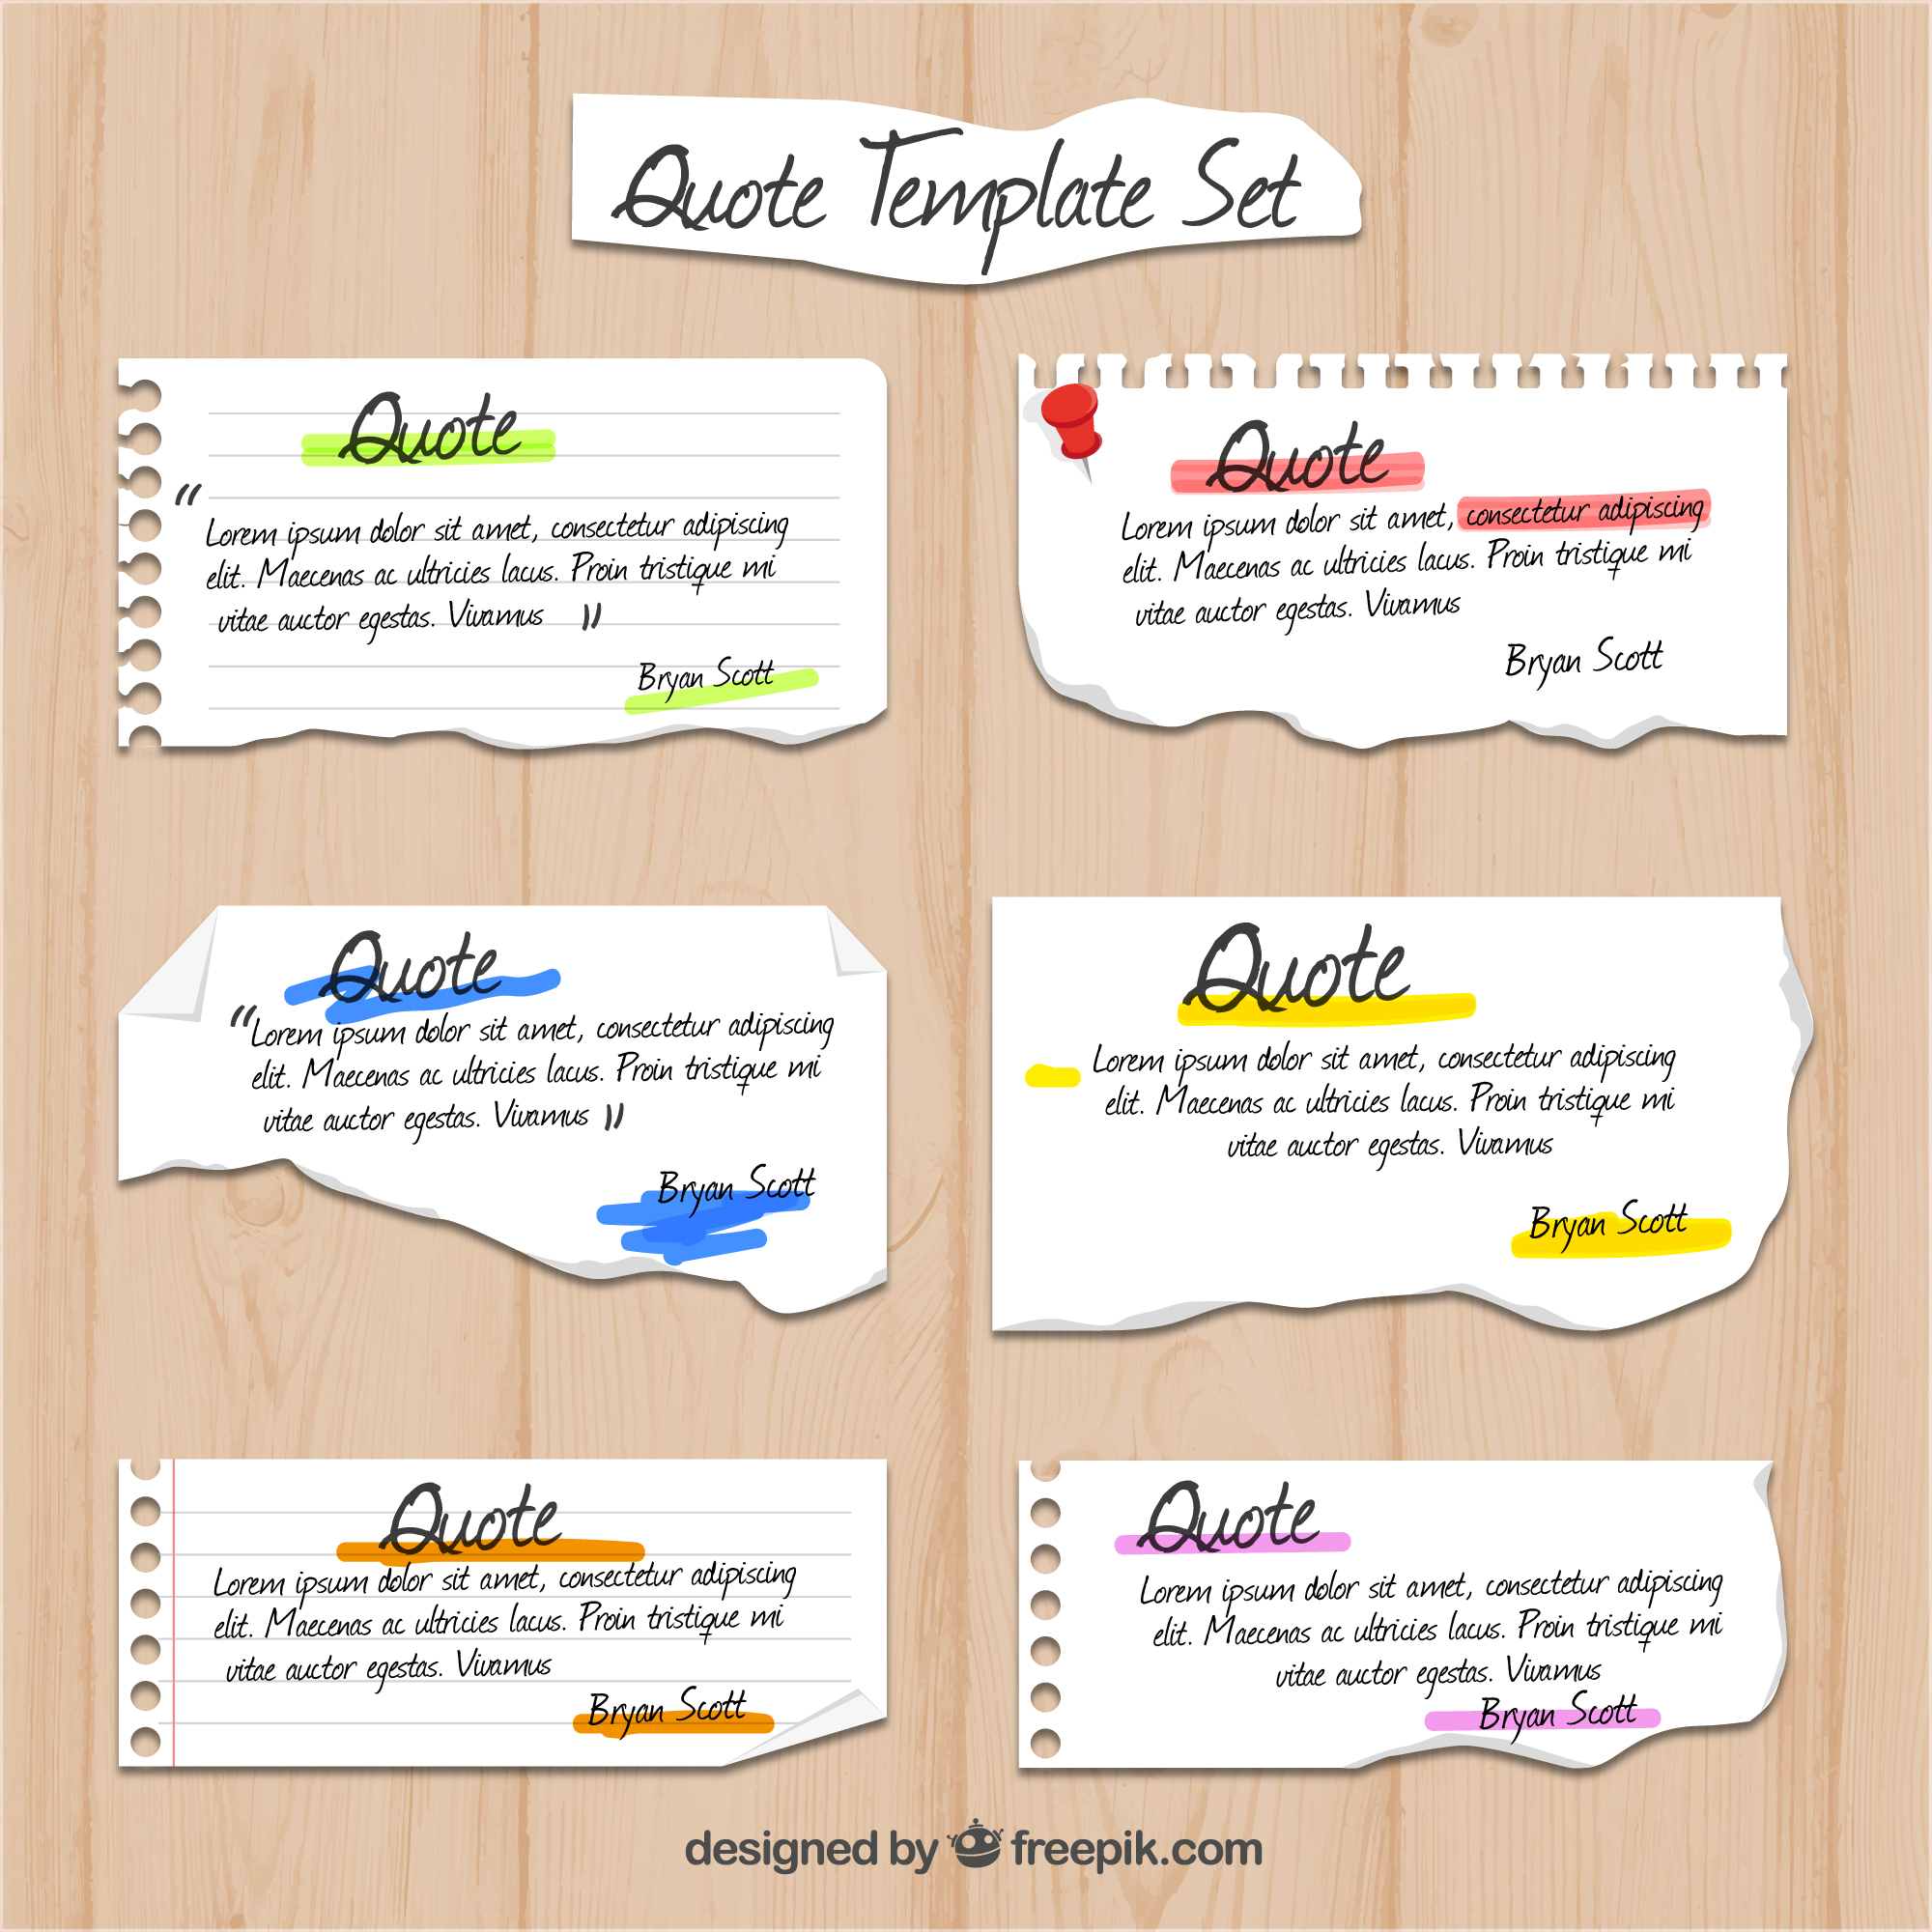 Quote Template Set
Quote
“
Lorem ipsum dolor sit amet, consectetur adipiscing
elit. Maecenas ac ultricies lacus. Proin tristique mi
vitae auctor egestas. Vivamus ”
Bryan Scott
Quote
Lorem ipsum dolor sit amet, consectetur adipiscing
elit. Maecenas ac ultricies lacus. Proin tristique mi
vitae auctor egestas. Vivamus
Bryan Scott
Quote
“Lorem ipsum dolor sit amet, consectetur adipiscing
elit. Maecenas ac ultricies lacus. Proin tristique mi
vitae auctor egestas. Vivamus ”
Bryan Scott
Quote
Lorem ipsum dolor sit amet, consectetur adipiscing
elit. Maecenas ac ultricies lacus. Proin tristique mi
vitae auctor egestas. Vivamus
Bryan Scott
Quote
Lorem ipsum dolor sit amet, consectetur adipiscing
elit. Maecenas ac ultricies lacus. Proin tristique mi
vitae auctor egestas. Vivamus
Bryan Scott
Quote
Lorem ipsum dolor sit amet, consectetur adipiscing
elit. Maecenas ac ultricies lacus. Proin tristique mi
vitae auctor egestas. Vivamus
Bryan Scott
designed by freepik.com